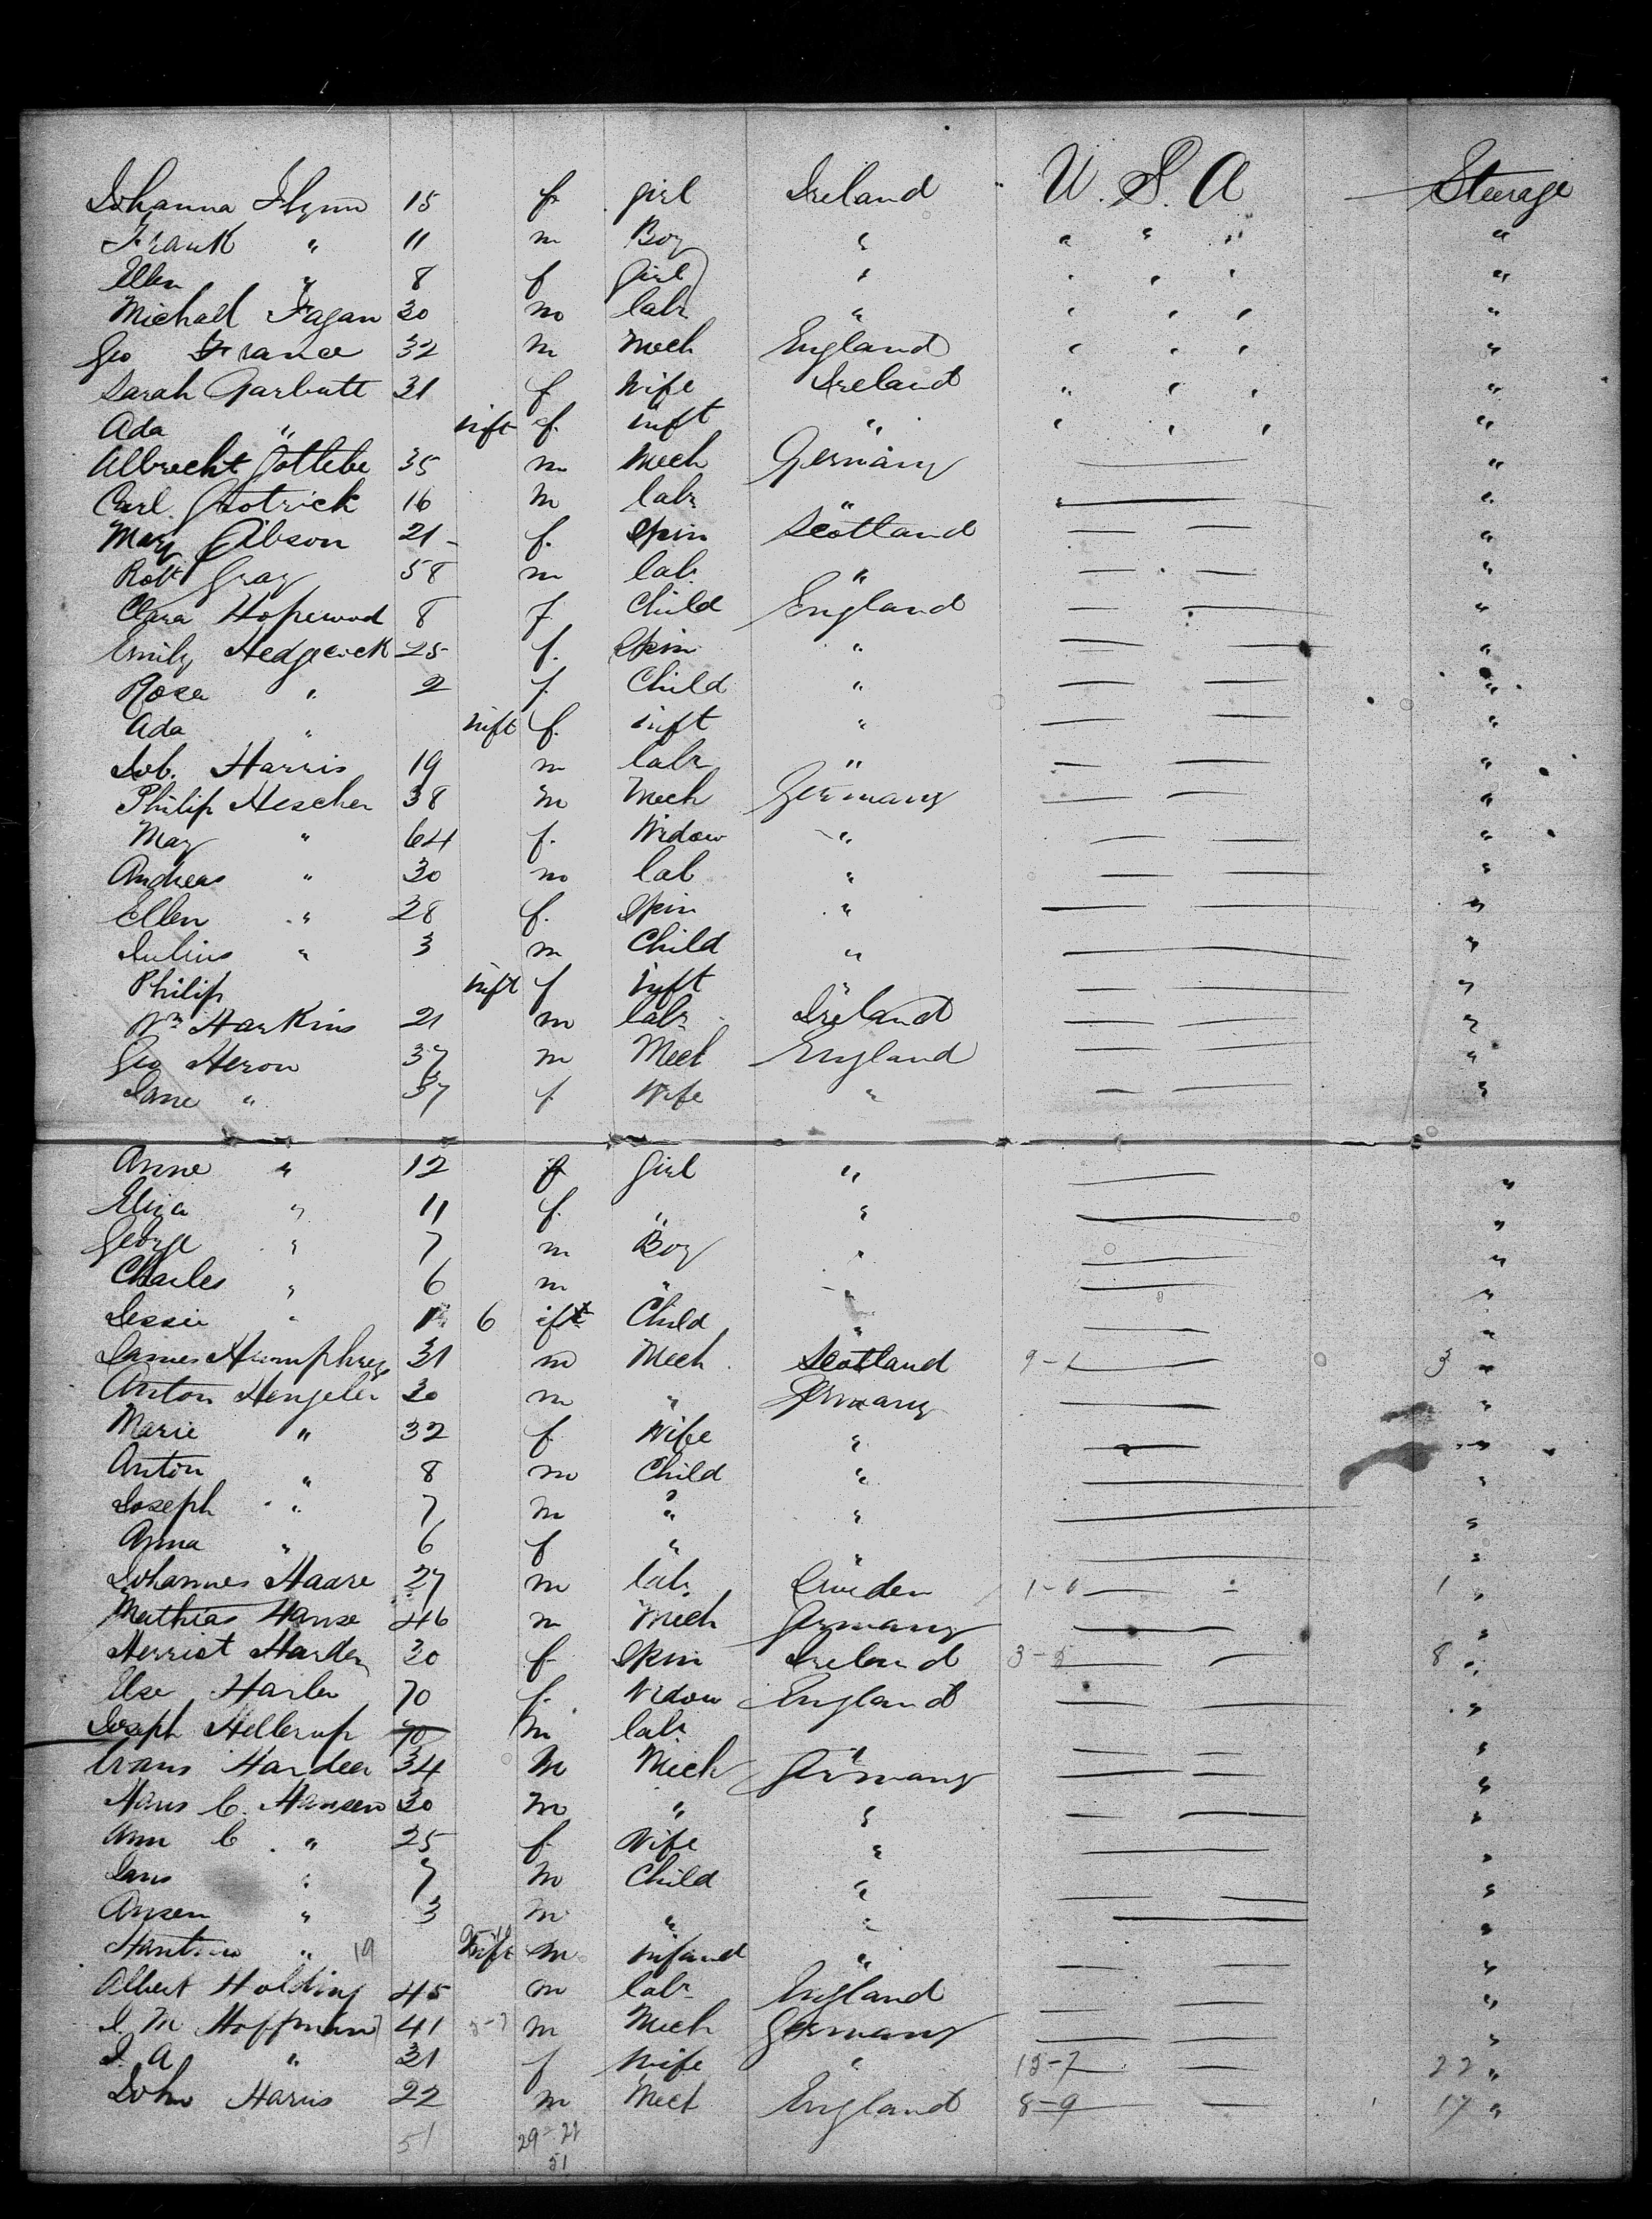 Johanna Flynn 15 f. girl Ireland " U. S. A Steerage
Frank " 11 m Boy " " " " "
Ellen " 8 f girl " " " " "
Michael Fagan 30 m labr " " " " "
Geo France 32 m Mech England " " " "
Sarah Garbutt 31 f Wife Ireland " " " "
Ada " inft f. inft " " " " "
Albrecht Gottlebe 35 m Mech Germany — "
Carl Grotrick 16 m labr " — "
Mary Gibson 21 - f. Spin Scotland — — "
Robt Gray 58 m lab. " — — "
Clara Hopewood 8 f. Child England — — "
Emily Hedgecick 25 f. Spin " — — "
Rosa " 2 f. Child " — — "
Ada " inft f. inft " — — "
Job. Harris 19 m labr " — — "
Philip Hescher 38 m Mech Germany — — "
May " 64 f. Widow " — — "
Andreas " 30 m lab " — — "
Ellen " 28 f. Spin " — — "
Julius " 3 m Child " — — "
Philip inft f inft — — "
Wm Harkins 21 m labr Ireland — — "
Geo Heron 37 m Mech England — — "
Jane " 37 f. Wife " — — "
Anne " 12 f girl " — "
Eliza " 11 f. " " — "
George " 7 m Boy " — "
Charles " 6 m " " — "
Jessie " 1 6 ift Child " — "
James Humphreys 31 m Mech. Scotland 9-1 — 3 "
Anton Hengeler 30 m " Germany — "
Marie " 32 f. Wife " — "
Anton " 8 m Child " — "
Joseph " 7 m " " — "
Anna " 6 f " " — "
Johannes Haare 27 m lab. Sweden — - 1 "
Mathias Hanse 46 m Mech Germany — "
Herriot Harden 30 f Spin Ireland — — 8 "
Else Harler 70 f. Widow England — — "
Joseph Hellerup 70 m labr — — "
Evans Hardeer 34 m Mech " Germany — — "
Hans C. Hansen 30 m " " — — "
Ann C " 25 f. Wife " — "
Jans " 7 m Child " — — "
Ansen " 3 m " " — — "
" 19 inft m infand " — — "
Albert Holding 45 m labr England — — "
J. M Hoffmann 41 m Mech Germany — — "
J. A " 31 f Wife " 15-7 — 22 "
John Harris 22 m Mech England 8-9 — 17 "
51 29-22
51